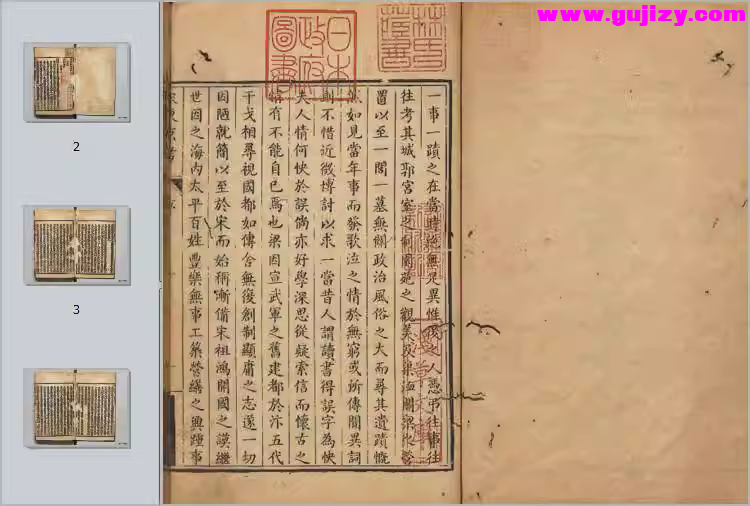 www.gujizy.com
日本
政府
圖書
林氏
藏書
一事一蹟之在當時絕無足異惟後之人憑弔往事往
往考其城郭宮室之制園苑之觀美及梁
置以至一閣一墓無關政治風俗之大而尋其遺蹟慨
然如見當年事而發歌泣之情於無窮或所傳聞異詞
則不惜近徵博討以求一當昔人謂讀書得誤字為快
夫人情何快於誤倘亦好學深思從疑索信而懷古之
情有不能自已焉也梁因宣武軍之舊建都於汴五代
干戈相尋視國都如傳舍無復創制顯庸之志遂一切
因陋就簡以至於宋而始稱漸備宋祖鴻開國之謨繼
世因之海內太平百姓豐樂無事工築營繕之興踵事
2
3